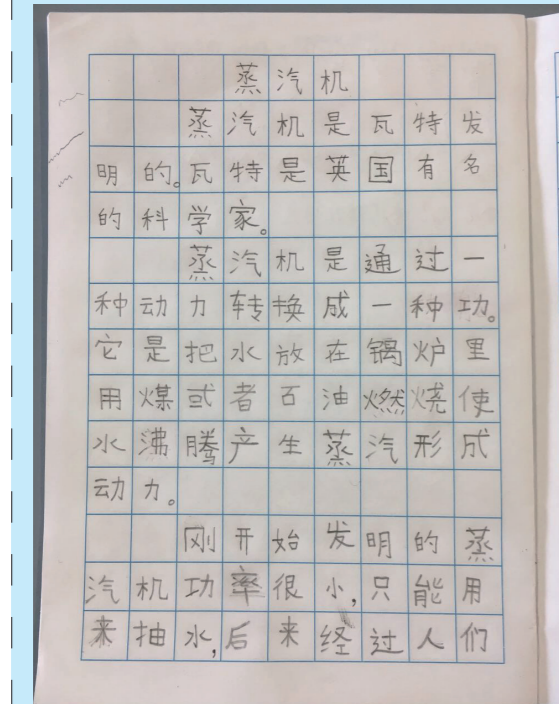 蒸汽机
蒸汽机是瓦特发
明的。瓦特是英国有名
的科学家。
蒸汽机是通过一
种动力转换成一种功。
它是把水放在锅炉里
用煤或者石油燃烧使
水沸腾产生蒸汽形成
动力。
刚开始发明的蒸
汽机功率很小,只能用
来抽水,后来经过人们